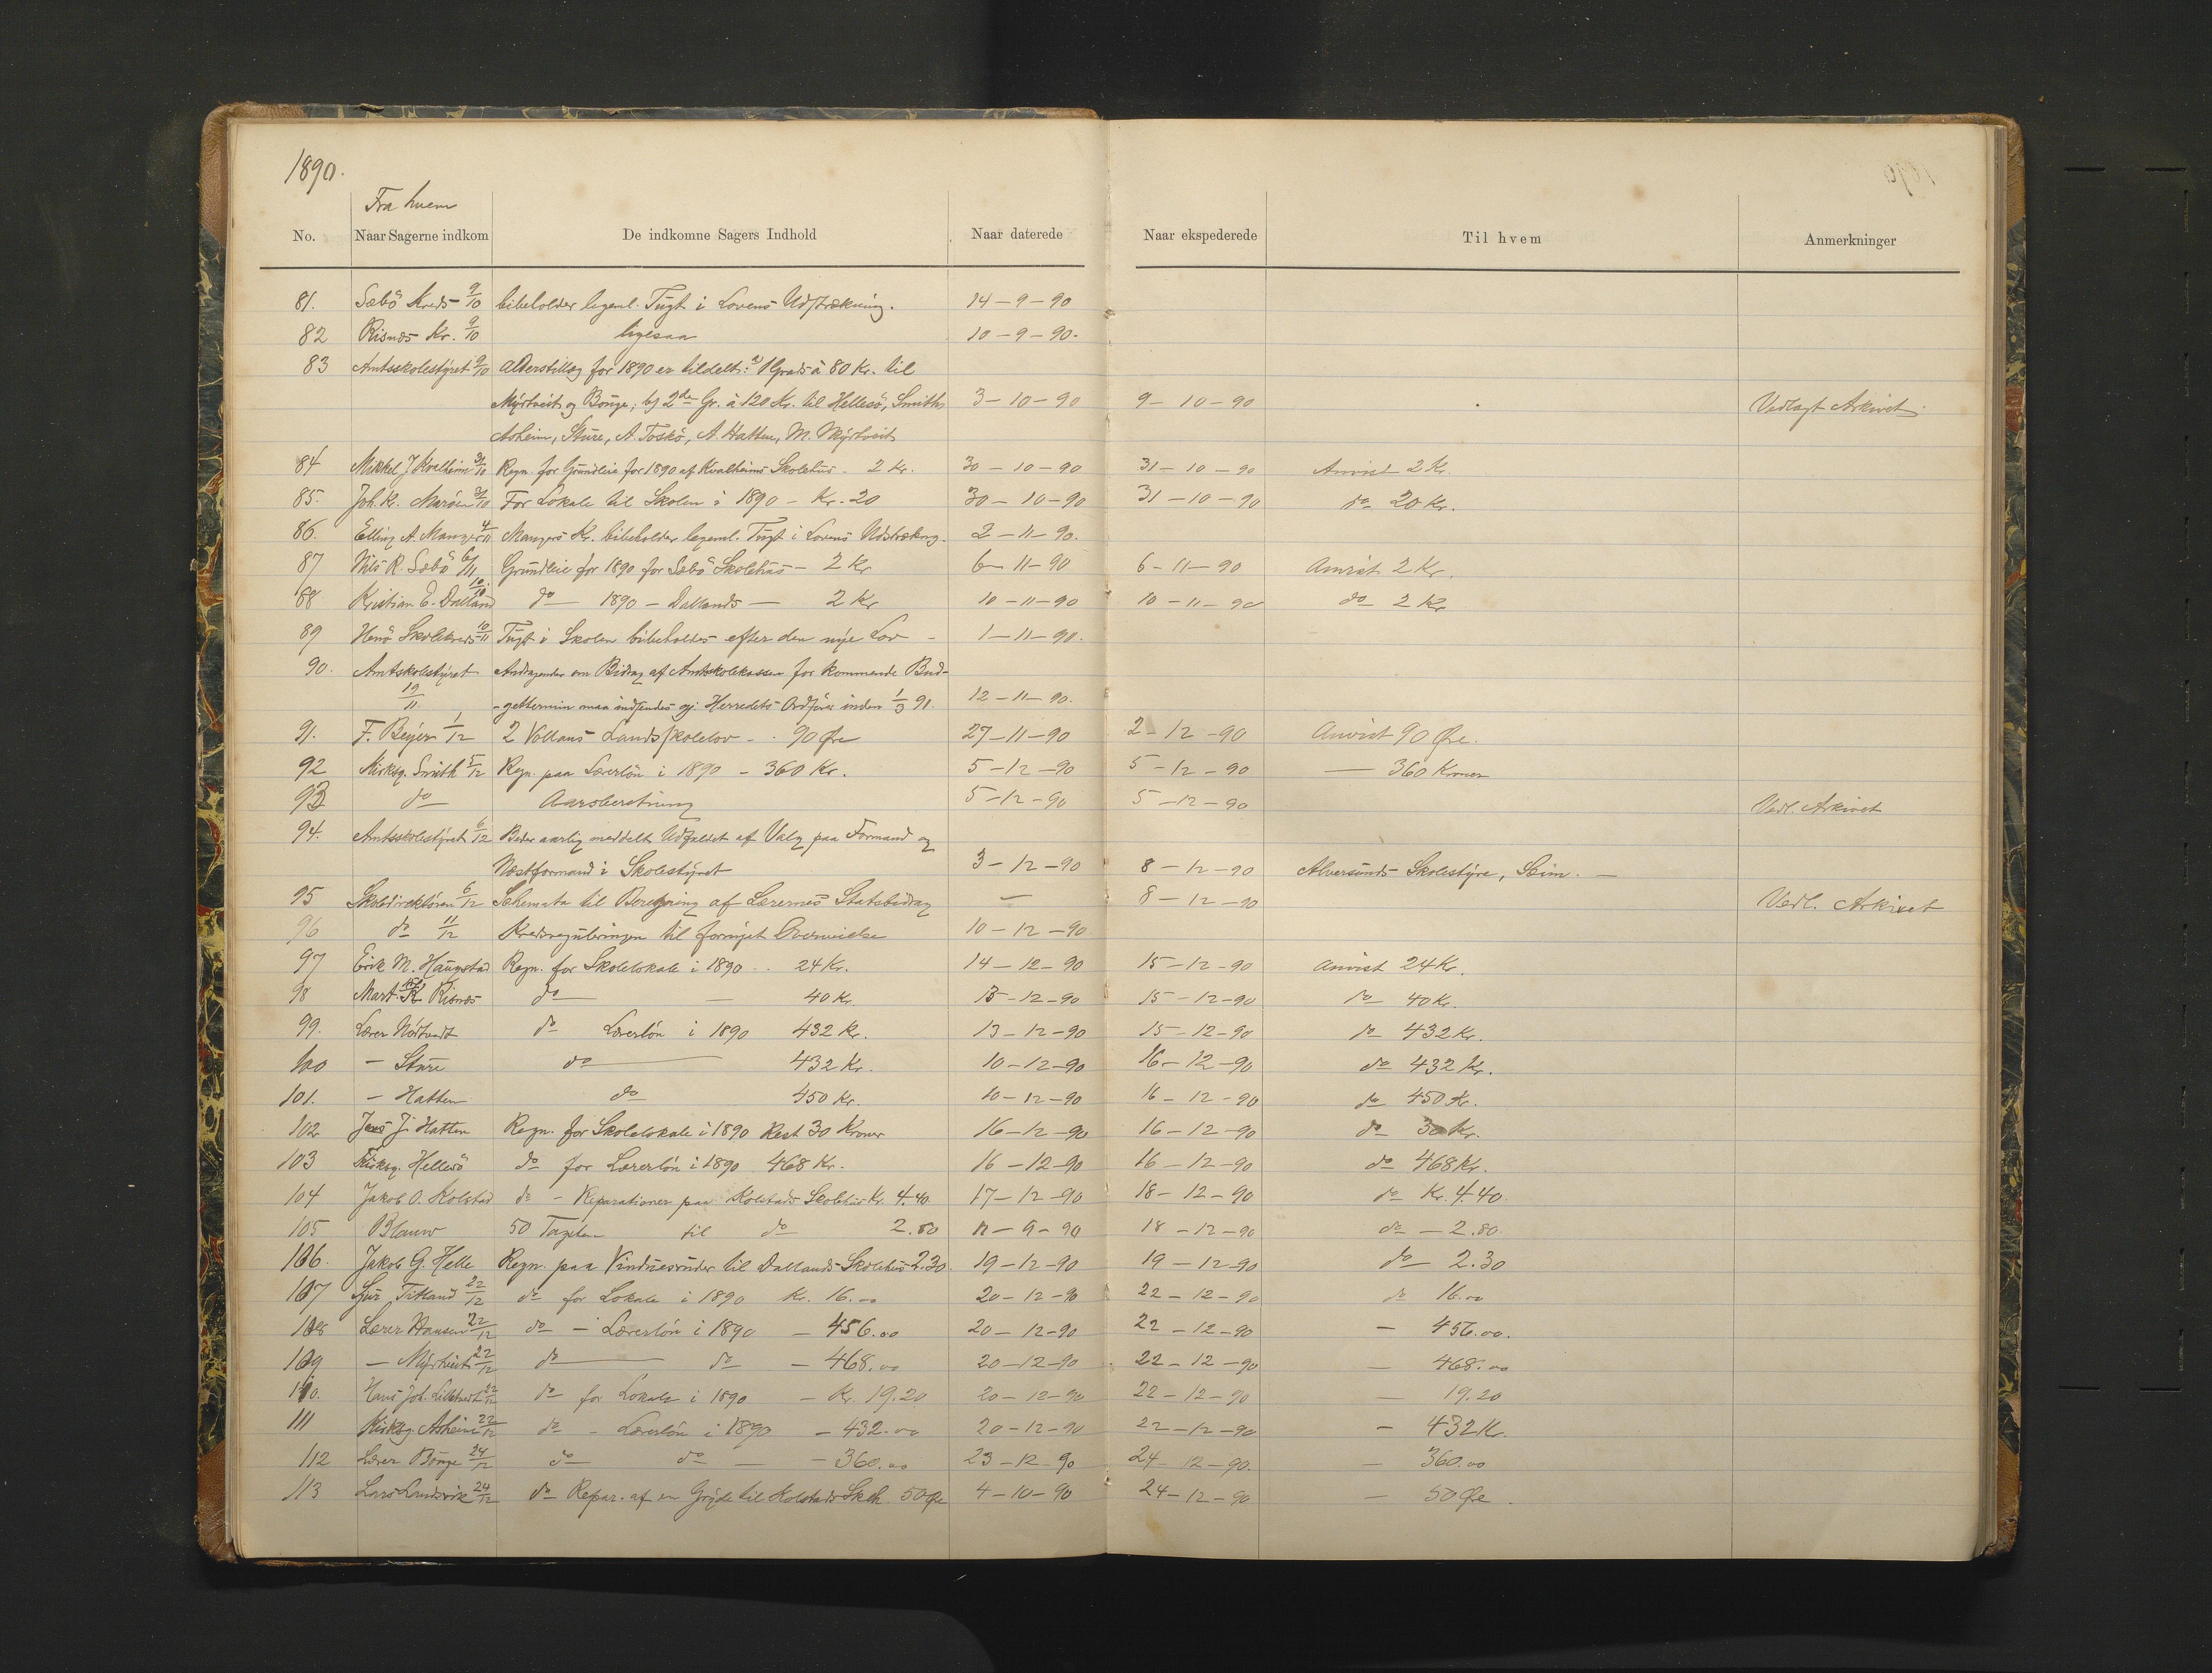 1890.
Fra hvem
No. Naar Sagerne indkom De indkomne Sagers Indhold Naar daterede Naar ekspederede Til hvem Anmerkninger
81. Sæbö Kreds 9/10 bibeholder legeml. Tugt i Lovens Udstrækning. 14-9-90
82 Risnes Kr. 9/10 ligesaa 10-9-90.
83 Amtsskolestyret 9/10 Alderstillæg for 1890 er tildelt: a) 1 Grads à 80 Kr. til
Myrtveit og Bonge; b) 2den Gr. à 120 Kr. til Hellesö, Smith, 3-10-90 9-10-90 Vedlagt Arkivet.
Asheim, Sture, A. Toskö, A. Hatten, M. Myrtveit
84 Mikkel J Kvalheim 31/10 Regn. for Grundleie for 1890 af Kvalheims Skolehus - 2 Kr. 30-10-90 31-10-90 Anvist 2 Kr.
85. Joh. K. Maröen 31/10 For Lokale til Skolen i 1890 - Kr. 20 30-10-90 31-10-90 do 20 Kr.
86. Elling A. Manger 4/11 Mangers Kr. bibeholder legeml. Tugt i Lovens Udstrækng. 2-11-90.
87 Nils R. Sæbö 6/11 Grundleie for 1890 for Sæbö Skolehus - 2 Kr 6-11-90 6-11-90 Anvist 2 Kr.
88 Kristian E. Dalland 10/10 do 1890 - Dallands - 2 Kr 10-11-90 10-11-90 do 2 Kr
89 Herö Skolekreds 10/11 Tugt i Skolen bibeholdes efter den nye Lov - 1-11-90.
90. Amtskolestyret Andragender om Bidrag af Amtskolekassen for kommende Bud-
19/11 -gettermin maa indsendes gj. Herredets Ordförer inden 1/3 91. 12-11-90.
91. F. Beyer 1/12 2 Vollans Landsskolelov - . 90 Øre 27-11-90 2-12-90 Anvist 90 Øre.
92 Kirksg. Smith 5/12 Regn. paa Lærerlön i 1890 - 360 Kr. 5-12-90 5-12-90 — 360 Kroner
93 do Aarsberetning 5-12-90 5-12-90 Vedl. Arkivet
94. Amtsskolestyret 6/12 Beder aarlig meddelt Udfaldet af Valg paa Formand og
Næstformand i Skolestyret 3-12-90 8-12-90 Alversunds Skolestyre, Seim. —
95 Skoledirektören 6/12 Schemata til Beregning af Lærernes Statsbidrag — 8-12-90 Vedl. Arkivet
96 do 11/12 Kredsreguleringen til fornyet Overveielse 10-12-90
97 Erik M. Haugstad Regn. for Skolelokale i 1890 .. 24 Kr. 14-12-90 15-12-90 Anvist 24 Kr.
98 Mart. K Risnes do — — 40 Kr. 13-12-90 15-12-90 do 40 Kr.
99. Lærer Nörtvedt do Lærerlön i 1890 432 Kr. 13-12-90 15-12-90 do 432 Kr.
100 - Sture do — 432 Kr. 10-12-90 16-12-90 do 432 Kr.
101. - Hatten do 450 Kr. 10-12-90 16-12-90 do 450 Kr.
102 Jens J. Hatten Regn. for Skolelokale i 1890 Rest 30 Kroner 16-12-90 16-12-90 do 30 Kr.
103 Kirksg. Hellesö do for Lærerlön i 1890 468 Kr. 16-12-90 16-12-90 do 468 Kr.
104 Jakob O. Kolstad do - Reparationer paa Kolstads Skolehus Kr. 4.40. 17-12-90 18-12-90 do Kr. 4.40.
105 Blauw 50 Tagsten til do 2.80 11-9-90 18-12-90 do - 2.80.
106. Jakob G. Helle Regn. paa Vinduesruder til Dallands Skolehus 2.30. 19-12-90 19-12-90 do 2.30
107 Sjur Titland 22/12 do for Lokale i 1890 Kr. 16.00 20-12-90 22-12-90 do 16.00
108 Lærer Hansen 22/12 do - Lærerlön i 1890 - 456.00 20-12-90 22-12-90 - 456.00.
109 - Myrtveit 22/12 do — do - 468.00 20-12-90 22-12-90 — 468.00
110. Hans Joh. Lilletvedt 22/12 do for Lokale i 1890 - Kr. 19.20 20-12-90 22-12-90 — 19.20
111 Kirksg. Asheim 22/12 do - Lærerlön i 1890 - 432.00 20-12-90 22-12-90 - 432 Kr.
112 Lærer Bonge 24/12 do do - - 360.00 23-12-90 24-12-90. — 360.00
113 Lars Lundsvik 24/12 do Repar. af en Gryde til Kolstads Skoh. 50 Øre 4-10-90 24-12-90 — 50 Øre.